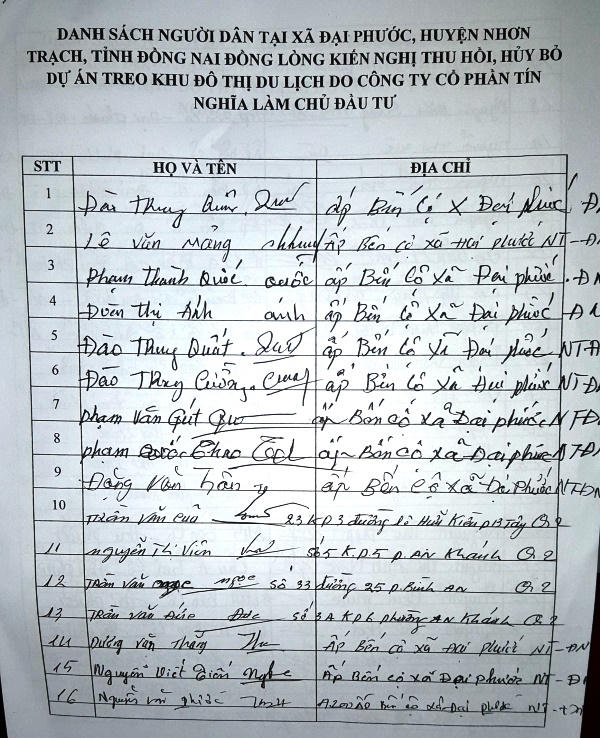 DANH SÁCH NGƯỜI DÂN TẠI XÃ ĐẠI PHƯỚC, HUYỆN NHƠN
TRẠCH, TỈNH ĐỒNG NAI ĐỒNG LÒNG KIẾN NGHỊ THU HỒI, HỦY BỎ
DỰ ÁN TREO KHU ĐÔ THỊ DU LỊCH DO CÔNG TY CỔ PHẦN TÍN
NGHĨA LÀM CHỦ ĐẦU TƯ
STT HỌ VÀ TÊN ĐỊA CHỈ
1 Đào Thụy ấp Bến Cộ X Đại phước
2 Lê Văn Mảng Ấp Bến cộ xã Đại phước NT-Đ
3 Phạm Thanh Quốc quốc ấp Bến Cộ Xã Đại phước.-ĐN
4 Đoàn Thị Ánh ánh ấp Bến Cộ Xã Đại phước -ĐN
5 Đào Thụy Quất ấp Bến Cộ Xã Đại phước NT-ĐN
6 Đào Thụy Cường ấp Bến Cộ Xã Đại phước NT-ĐN
7 phạm Văn Gút ấp Bến cộ xã Đại phước NTĐN
8 phạm ấp Bến Cộ xã Đại phước NTĐN
9 Đặng Văn ấp Bến Cộ xã Đại Phước NT-ĐN
10 Trần Văn 23 KP3 đường Lê Hữu Kiều P B Tây Q2
11 Nguyễn Thị Viên Số 5 K.P.5 P. AN Khánh Q2
12 Trần Văn ngọc Số 33 đường 25 P Bình An Q2
13 Trần Văn Đức Đức số 3A KP6 phường AN Khánh Q2
14 Dương Văn Thắng Ấp Bến cộ xã Đại phước NT-ĐN
15 Nguyễn Viết Ấp Bến cộ xã Đại phước NT-ĐN
16 Nguyễn Bến cộ xã Đại phước NT-